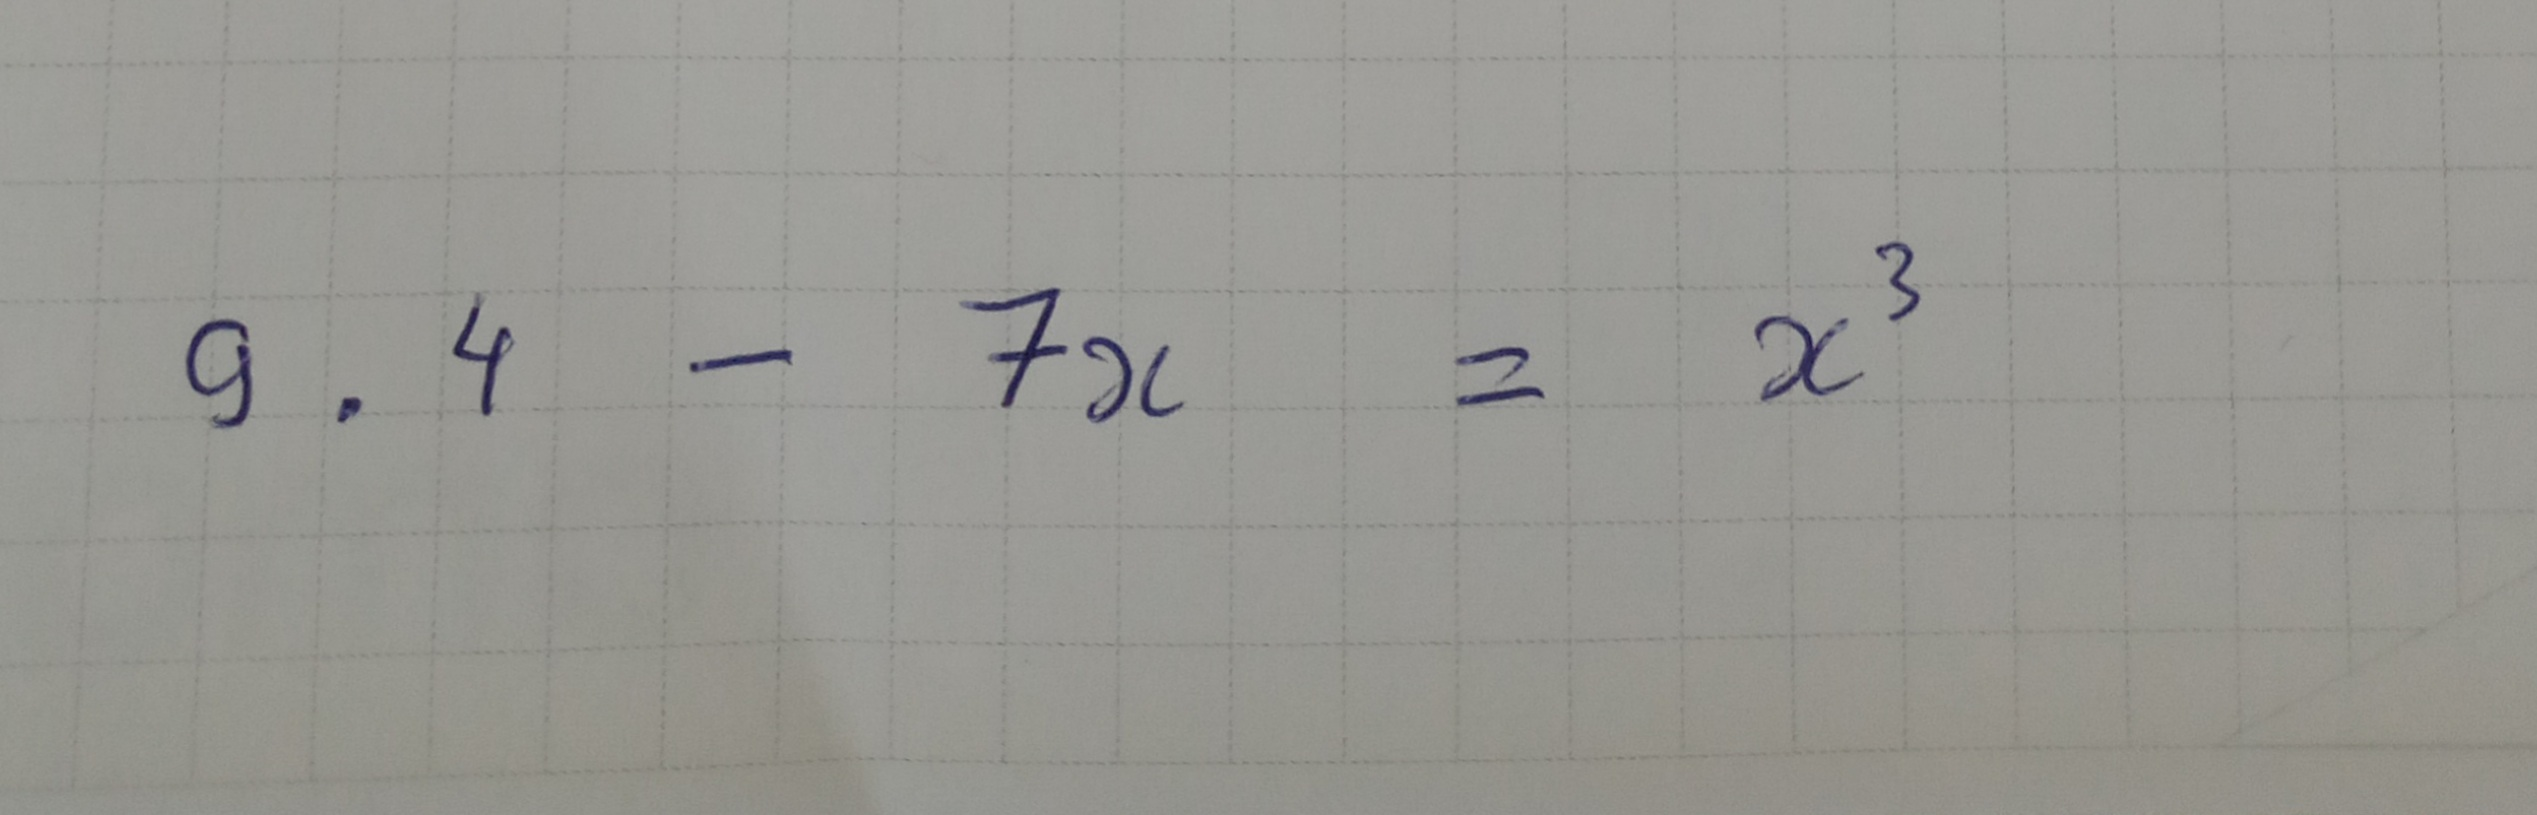 9.4 - 7x = x³